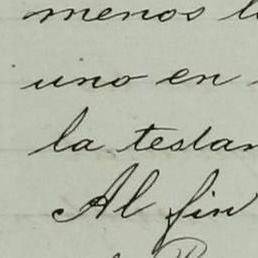 menos l
uno en
la testam
Al fin